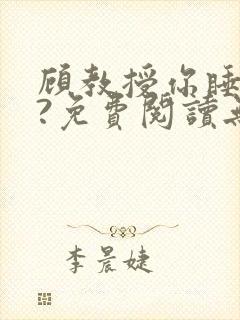 顾教授你睡
?免費閱讀
李晨婕